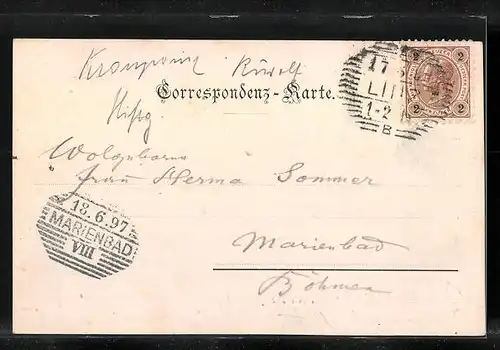 Kronprinz Rudolf
Correspondenz-Karte.
Wolgeborne
Frau Herma Sommer
Marienbad
Böhmen
17
LIN
1-2
B
2 2
2 2
18.6.97
MARIENBAD
VIII